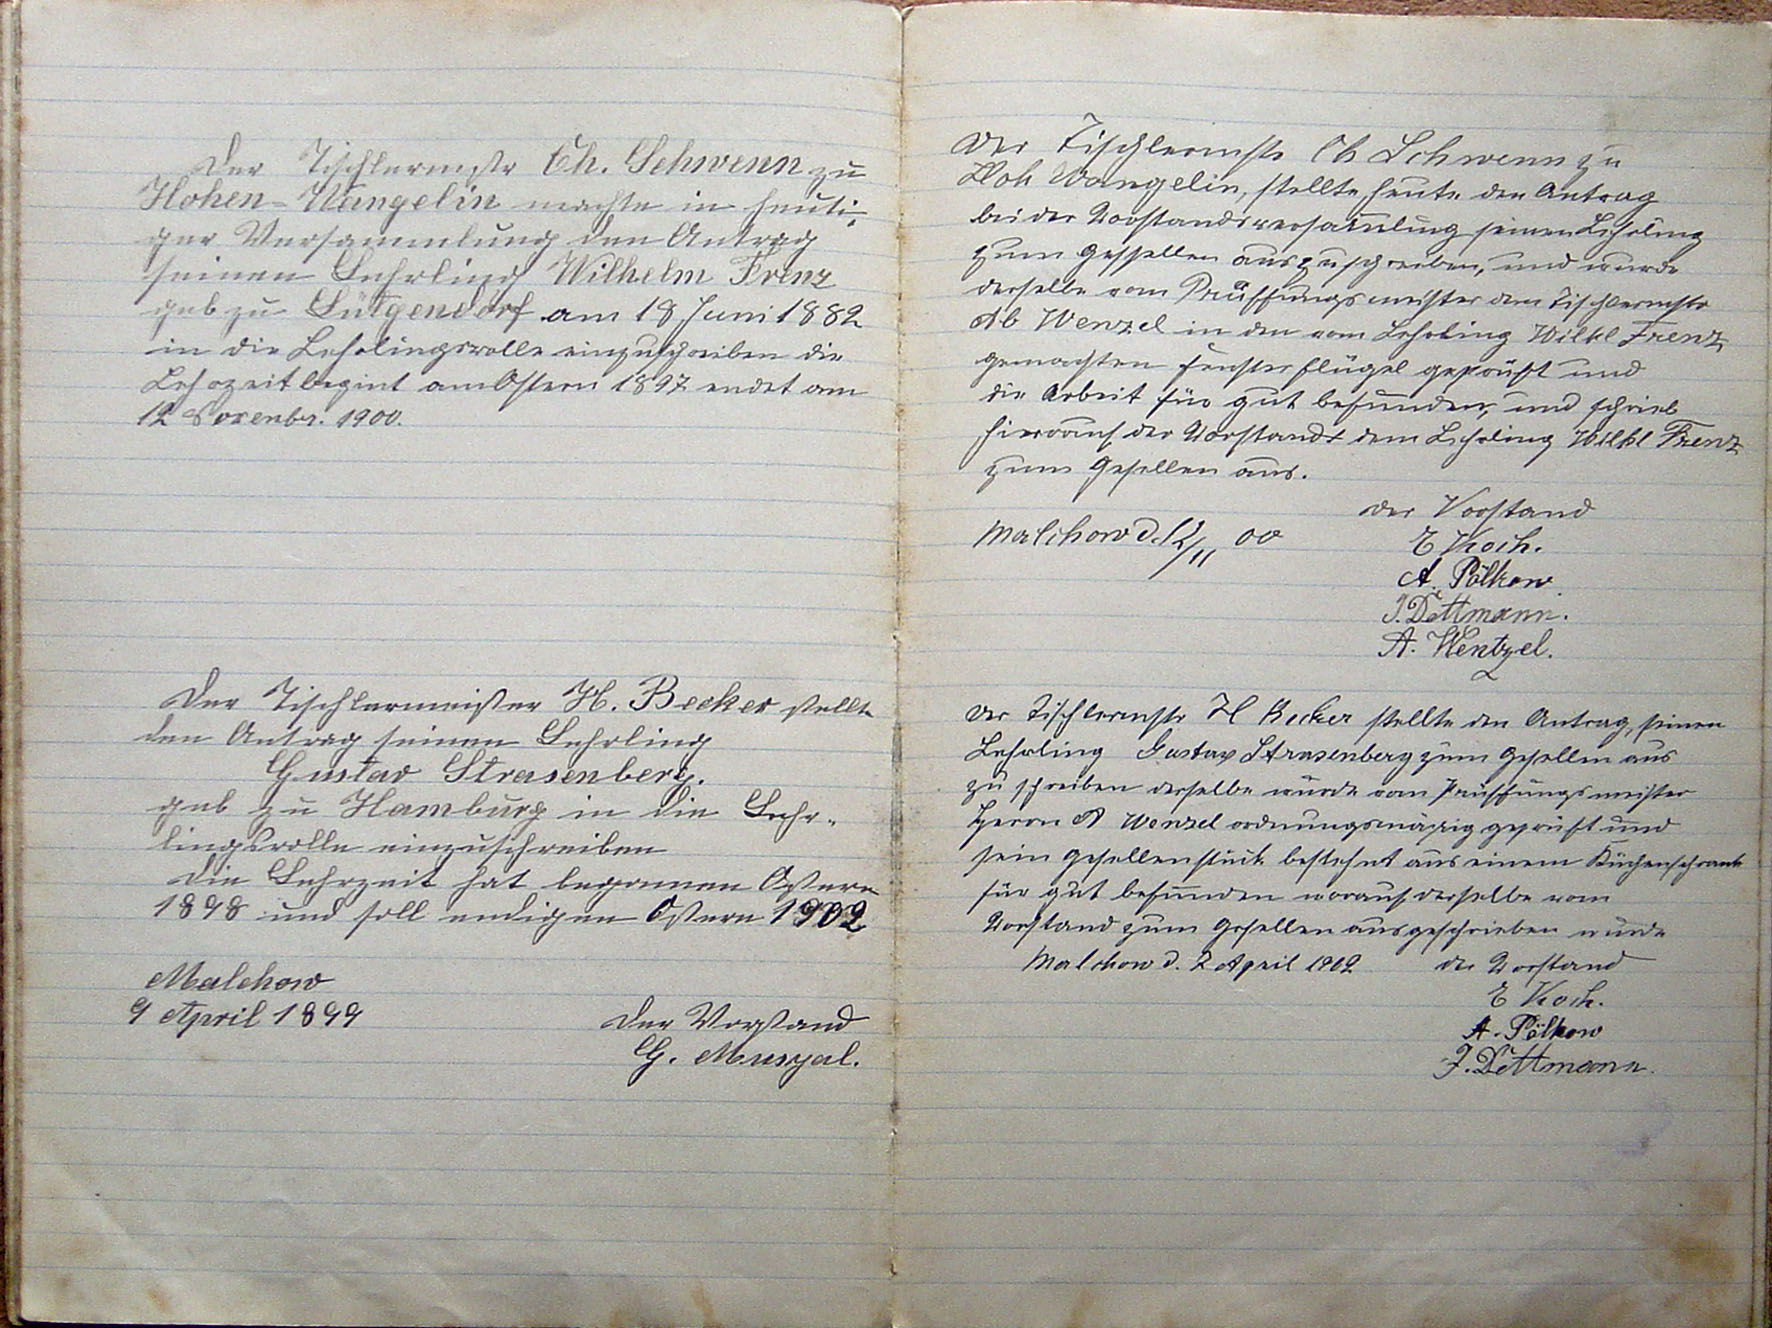 Der Tischlermstr Ch. Schwenn zu
Hohen-Wangelin machte in heuti-
ger Versammlung den Antrag
seinen Lehrling Wilhelm Frenz
geb zu Lütgendorf am 18 Juni 1882
in die Lehrlingsrolle einzuschreiben die
Lehrzeit begint am Ostern 1897 endet am
12 Novenbr. 1900.
Der Tischlermeister H. Becker stellte
den Antrag seinen Lehrling
Gustav Strasenberg.
geb zu Hamburg in die Lehr-
lingsrolle einzuschreiben
Die Lehrzeit hat begonnen Ostern
1898 und soll endigen Ostern 1902
Malchow
9 April 1899
Der Vorstand
G.
Der Tischlermstr Ch Schwenn zu
Hoh Wangelin, stellte heute den Antrag
bei der Vorstandsversamling seinen Lehrling
zum Gesellen auszuschreiben, und wurde
derselbe vom Prüffungsmeister dem Tischlermstr
Ab Wenzel in den vom Lehrling Wilhl Frenz
gemachten Fensterflügel geprüft und
die Arbeit für gut befunden, und schrieb
hierrauf der Vorstand dem Lehrling Wilhl Frenz
zum Gesellen aus.
der Vorstand
Malchow d. 12/11 00
E Koch.
A. Pölkow
J. Dettmann.
A. Wentzel.
Der Tischlermstr H Becker stellte den Antrag, seinen
Lehrling Gustav Strasenberg zum Gesellen aus
zu schreiben derselbe wurde vom Prüffungsmeister
Herrn A Wenzel ordnungsmäßig geprüft und
sein Gesellenstück bestehnt aus einem Küchenschrank
für gut befunden worauf derselbe vom
Vorstand zum Gesellen ausgeschrieben wurde
Malchow d. 2 April 1902 der Vorstand
E Koch.
A. Pölkow
J. Dettmann.